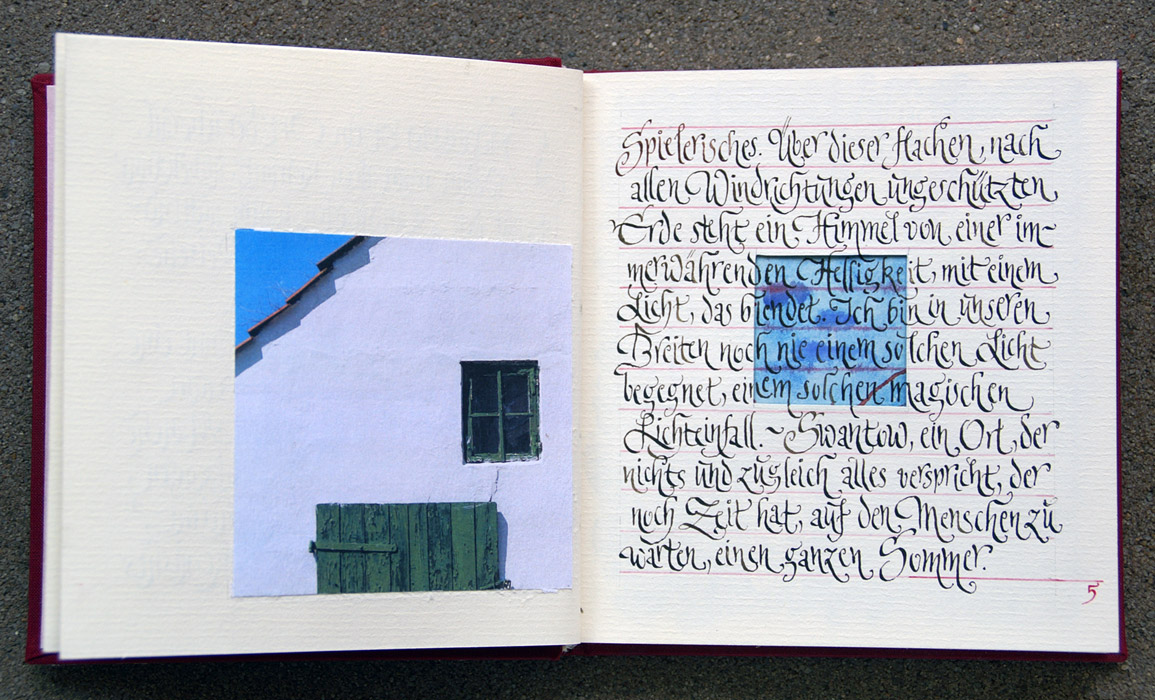 Spielerisches. Über dieser flachen, nach
allen Windrichtungen ungeschützten
Erde steht ein Himmel von einer im-
merwährenden Helligkeit, mit einem
Licht, das blendet. Ich bin in unseren
Breiten noch nie einem solchen Licht
begegnet, einem solchen magischen
Lichteinfall. ~ Swantow, ein Ort, der
nichts und zugleich alles verspricht, der
noch Zeit hat, auf den Menschen zu
warten, einen ganzen Sommer.
5